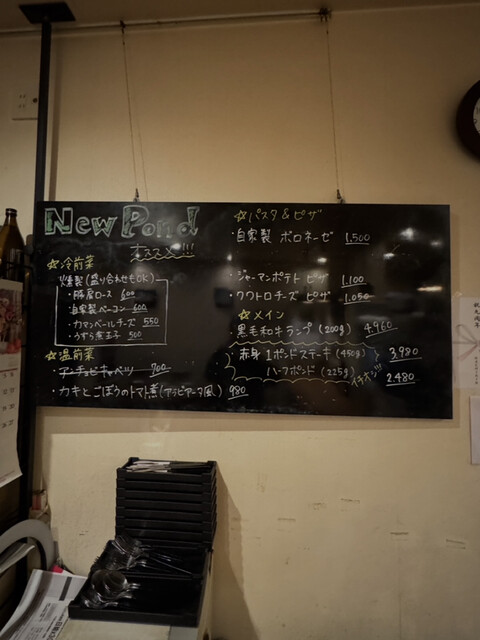 New Pond
おススメ!!!
☆冷前菜
燻製(盛り合わせもOK)
・豚肩ロース 600
・自家製ベーコン 600
・カマンベールチーズ 550
・うずら煮玉子 500
☆温前菜
・アンチョビキャベツ 700
・カキとごぼうのトマト煮(アラビアータ風) 980
☆パスタ&ピザ
・自家製 ボロネーゼ 1.500
・ジャーマンポテト ピザ 1.100
・クワトロチーズ ピザ 1.050
☆メイン
黒毛和牛ランプ(200g) 4.960
赤身 1ポンドステーキ(450g) 3.980
ハーフポンド(225g) 2.480
イチオシ!!